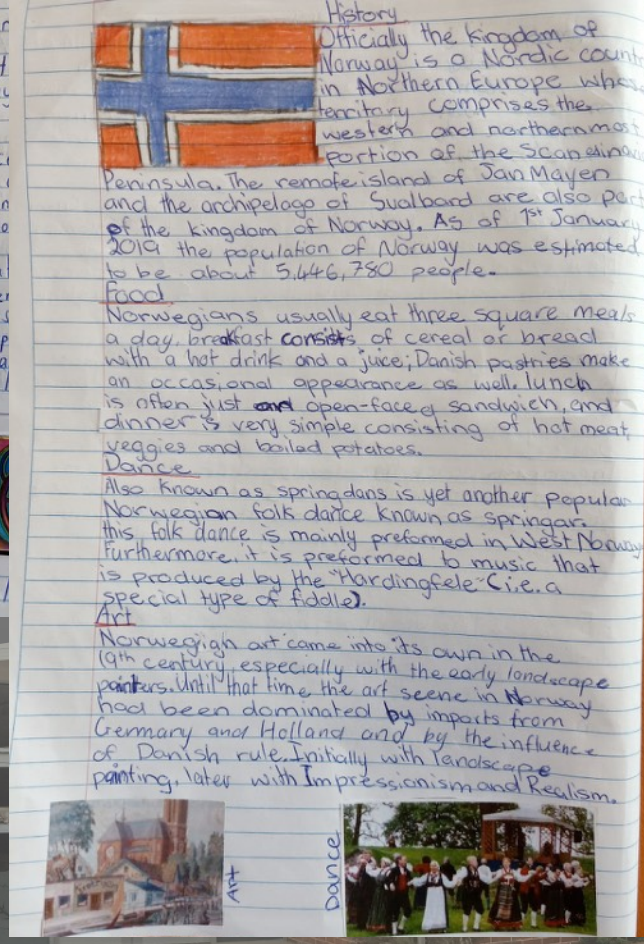 History
Officially the kingdom of
Norway is a Nordic countr
in Northern Europe whos
territory comprises the
western and northernmos
portion of the Scandina
Peninsula. The remote island of Jan Mayen
and the archipelago of Svalbard are also part
of the kingdom of Norway. As of 1st January
2019 the population of Norway was estimated
to be about 5,446,780 people.
Food
Norwegians usually eat three square meals
a day. breakfast consists of cereal or bread
with a hot drink and a juice; Danish pastries make
an occasional appearance as well. lunch
is often just an open-faced sandwich, and
dinner is very simple consisting of hot meat,
veggies and boiled potatoes.
Dance
Also known as springdans is yet another popular
Norwegian folk dance known as springar.
this folk dance is mainly preformed in West Norway
Furthermore, it is preformed to music that
is produced by the "Hardingfele" (i.e. a
special type of fiddle).
Art
Norwegigh art came into its own in the
19th century, especially with the early landscape
painters. Until that time the art scene in Norway
had been dominated by imports from
Germany and Holland and by the influence
of Danish rule. Initially with landscape
painting, later with Impressionism and Realism.
Art
Dance